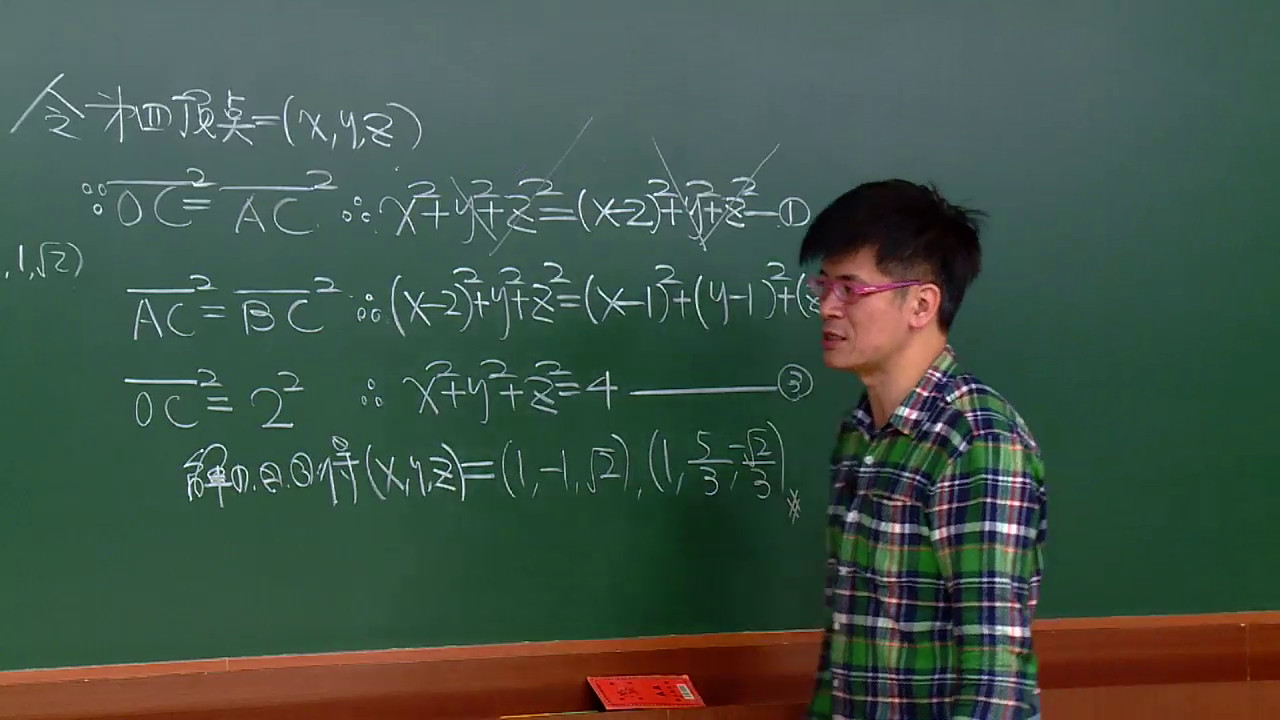 令第四頂點=(x,y,z)
∵OC²=AC² ∴x²+y²+z²=(x-2)²+y²+z²—①
,1,√2)
AC²=BC² ∴(x-2)²+y²+z²=(x-1)²+(y-1)²+(z
OC²=2² ∴ x²+y²+z²=4 ———③
解①.②.③得(x,y,z)=(1,-1,√2),(1,5/3,-√2/3)※